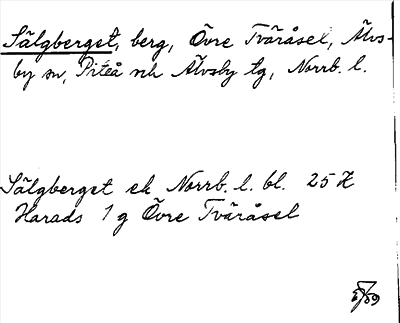 Sälgberget, berg, Övre Tväråsel, Älvs-
by sn, Piteå och Älvsby tg, Norrb. l.
Sälgberget ek Norrb. l. bl. 25 H
Harads 1 g Övre Tväråsel